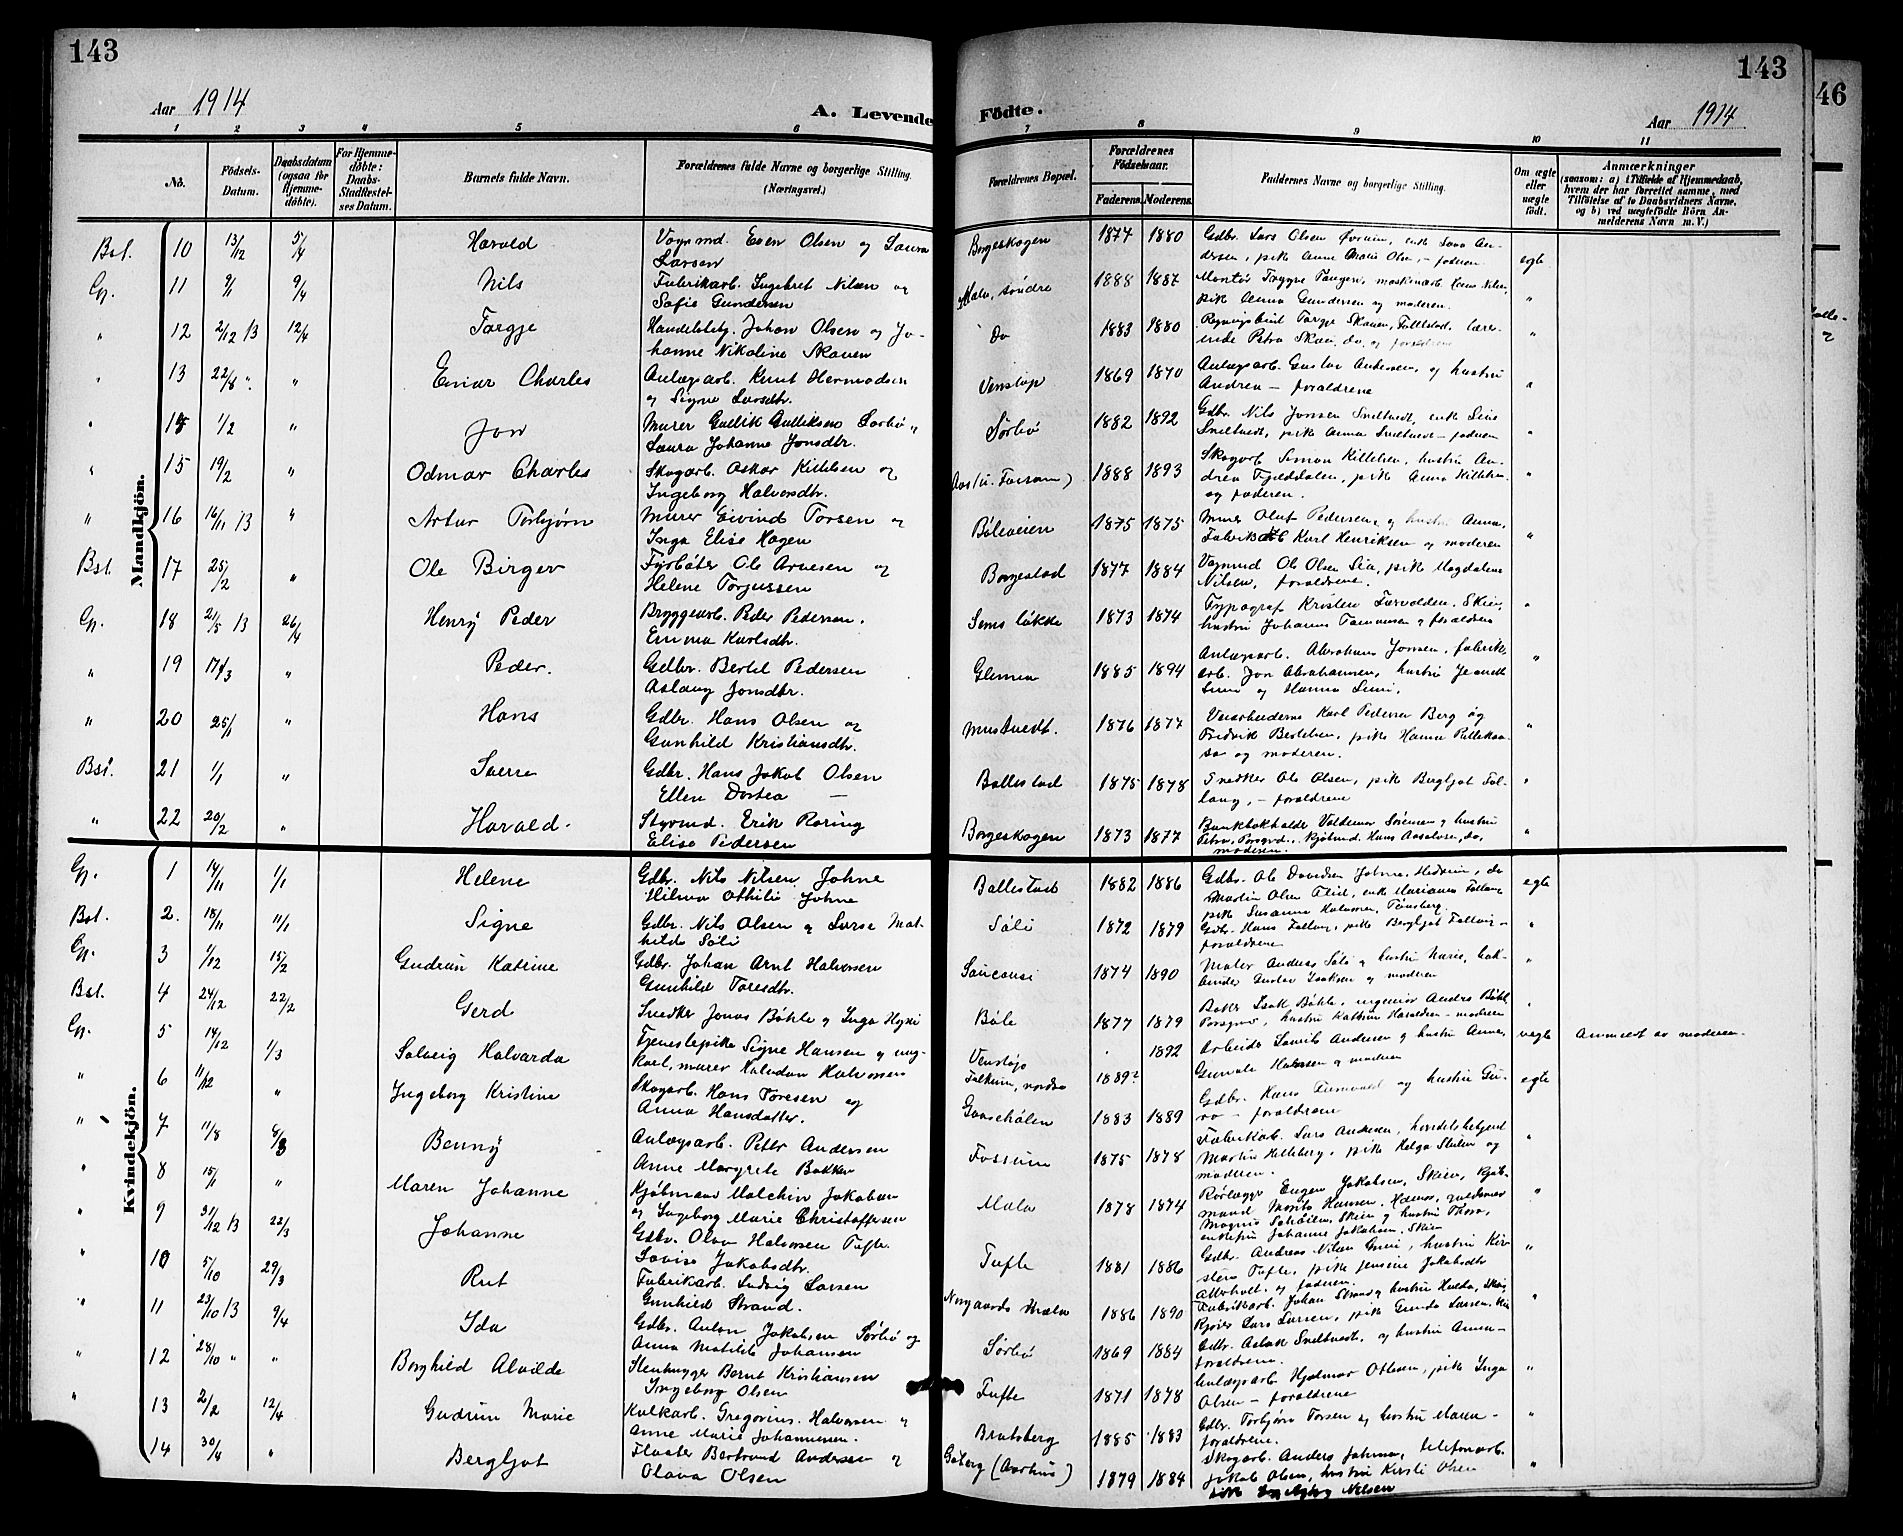 143
143
46
Aar 1914
A. Levende Födte.
Aar 1914
1 2 3 4 5 6 7 8 9 10 11
No.
Födsels-Datum.
Daabsdatum (ogsaa for Hjemmedöbte).
For Hjemmedöbte: Daabs-Stadfæstelses Datum.
Barnets fulde Navn.
Forældrenes fulde Navne og borgerlige Stilling. (Næringsvei.)
Forældrenes Bopæl.
Forældrenes Födselsaar.
Faderens. Moderens.
Faddernes Navne og borgerlige Stilling.
Om ægte eller uægte födt.
Anmærkninger
(saasom: a) i Tilfælde af Hjemmedaab, hvem der har forrettet samme, med Tilföielse af to Daabsvidners Navne, og b) ved uægtefödte Börn Anmelderens Navn m. V.)
Mandkjön.
Bst. 10 13/12 5/4 Harald Vognmd. Even Olsen og Laura Larsen Borgeskogen 1874 1880 Gdbr. Lars Olsen egte
Gp. 11 9/1 9/4 Nils Fabrikarb. Ingebret Nilsen og Sofie Gundersen Mæla, søndre 1888 1887 Montør Trygve Tangen, pike Anna Gundersen og moderen "
" 12 2/12 13 12/4 Torgje Johan Olsen og Johanne Nikoline Skauen Do 1883 1880 Torgje Skauen, Petra Skauen, do, og forældrene "
" 13 22/8 " " Einar Charles Anlægsarb. Knut Hermodsen og Signe Larsdtr. Venstøp 1869 1870 Anlægsarb. Gustav Andersen og hustru Andrea – forældrene "
" 14 1/2 " Jon Murer Gullik Gulliksen Sørbø og Laura Johanne Jonsdtr. Sørbø 1882 1892 Gdbr. Nils Jonsen Sneltvedt, enke Line Sneltvedt, pike Anna Sneltvedt – faderen "
" 15 19/2 " Odmar Charles Skogarb. Oskar Kittilsen og Ingeborg Halvorsdtr. Aas (u. Fossum) 1888 1893 Skogarb. Simon Kittilsen, hustru Andrea Fjelddalen, pike Anna Kittilsen og faderen. "
" 16 16/11 13 " Artur Torbjørn Murer Eivind Torsen og Inga Elise Hagen Bøleveien 1875 1875 Murer Olaf Pedersen og hustru Anna, Fabrikarb Karl Henriksen og moderen "
Bst. 17 25/2 " Ole Birger Fyrbøter Ole Arnesen og Helene Torjussen Borgestad 1877 1884 Vognmd Ole Olsen Lia, pike Magdalene Nilsen, forældrene. "
Gp. 18 21/5 13 26/4 Henry Peder Bryggearb. Peder Pedersen. Emma Karlsdtr. Sems løkke 1873 1874 Typograf Kristen Skien, hustru Johanne og forældrene "
" 19 17/3 " Peder. Gdbr. Bertel Pedersen Aslaug Jonsdtr. Glenna 1885 1894 Anlægsarb. Abraham Jonsen, fabrikarb. Jon Abrahamsen, hustru "
" 20 25/1 " Hans Gdbr. Hans Olsen og Gunhild Kristiansdtr. Mustvedt. 1876 1877 Karl Pedersen Berg og Fredrik Bertelsen, pike Hanna og moderen. "
Bst. 21 1/1 " Sverre Gdbr. Hans Jakob Olsen Ellen Dortea – Ballestad 1875 1878 Snedker Ole Olsen, pike Bergljot Follaug, – forældrene "
" 22 20/2 " Harald. Styrmd. Erik Roring Elise Pedersen Borgeskogen 1873 1877 Bankbokholder Valdemar Sørensen og hustru Petra, Porsgrd., Kjøbmd. Hans do, moderen. "
Kvindekjön.
Gp. 1 14/11 1/1 Helene Gdbr. Nils Nilsen Johne Hilma Othilie Johne Ballestad 1882 1886 Gdbr. Ole Davidsen Johne, do Martin Olsen pike Susanna Halvorsen, Tønsberg. egte
Bst. 2. 18/11 11/1 Signe Gdbr. Nils Olsen og Mathilde Søli Søli 1872 1879 Gdbr. Hans Follaug, pike Bergljot Follaug – forældrene "
Gp. 3 1/12 15/2 Gudrun Katrine Gdbr. Johan Arnt Halvorsen Gunhild Toresdtr. 1874 1890 Maler Andreas Søli og hustru Marie, Gustav Isaksen og moderen "
Bst. 4 24/12 22/2 Gerd Snedker Jonas Bøhle og Inga Bøle 1877 1879 Baker Isak Bøhle, ingeniør Anders Bøhle Porsgrund, hustru Kathrine Haraldsen – moderen "
Gp. 5 14/12 1/3 Solveig Halvarda Tjenestepike Signe Hansen og ungkarl, murer Halvdan Halvorsen Venstøp Falkum, nordre 1889? 1892 Arbeider Laurits Andersen og hustru Anna, og moderen uegte Anmeldt av moderen.
" 6 11/12 " Ingeborg Kristine Skogarb. Hans Toresen og Anna Hansdatter. Gaasehølen 1883 1889 Gdbr. Hans og hustru Guro – forældrene egte
" 7 11/8 8/3 Benny Anlægsarb. Peter Andersen Anne Margrete Bakken Fossum 1875 1878 Fabrikarb. Lars Andersen, handelsbetjent Martin Helleberg, pike Helga og moderen. "
" 8 15/1 " Maren Johanne Kjøbmand Malchin Jakobsen og Ingeborg Marie Christoffersen Mæla 1878 1874 Rørlægger Eugen Jakobsen, Skien, kjøbmand Hansen, enkefru Johanne Jakobsen, Skien "
" 9 31/12 13 22/3 Johanne Gdbr. Olav Halvorsen Tufte. Lovise Jakobsdtr. Tufte 1881 1886 Gdbr. Andreas Nilsen hustru Kirsten Tufte, pike Jensine Jakobsdtr og faderen. "
" 10 5/10 29/3 Rut Fabrikarb. Ludvig Larsen Gunhild Strand. Norgaards Mæla 1886 1890 Fabrikarb. Johan Strand og hustru Hulda, Lars Larsen, pike Gunda Larsen "
" 11 23/10 13 9/4 Ida Gdbr. Anton Jakobsen Sørbø og Anna Matilde Johansen Sørbø 1869 1884 Gdbr. Aslak Sneltvedt og hustru Anna – forældrene. "
" 12 28/10 " " Borghild Alvilde Stenhugger Bernt Kristiansen Ingeborg Olsen Tufte 1871 1878 Anlægsarb Hjalmar Olsen, pike Inga Olsen – forældrene "
" 13 2/2 12/4 Gudrun Marie Kalkarb. Gregorius Halvorsen og Anne Marie Johannesen. Bratsberg 1885 1883 Gdbr. Torbjørn Torsen og hustru Maren – forældrene. "
14 30/4 " Bergljot Fløter Bertrand Andersen og Olava Olsen Gøberg (Aarhus) 1879 1884 Skogarb. Anders telefonarb. Jakob Olsen, hustru Kirsti Olsen pike Ingeborg Nilsen "